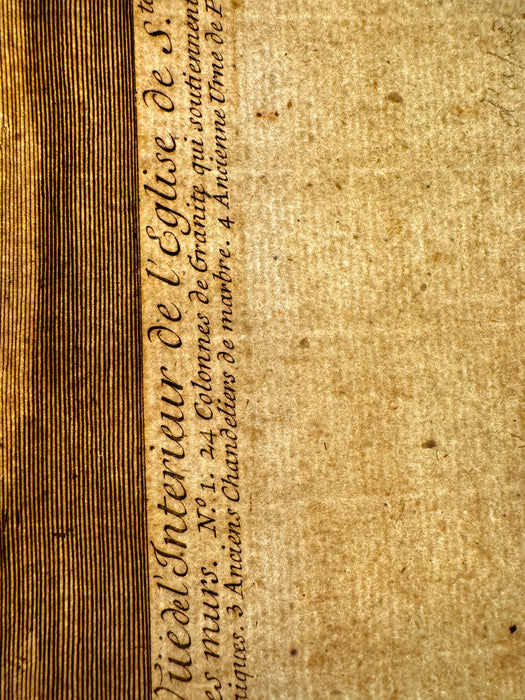 Vüe de l'Interieur de l'Eglise de S.te
es murs. N.º 1. 24 Colonnes de Granite qui soutiennent
iques. 3 Anciens Chandeliers de marbre. 4 Ancienne Urne de P